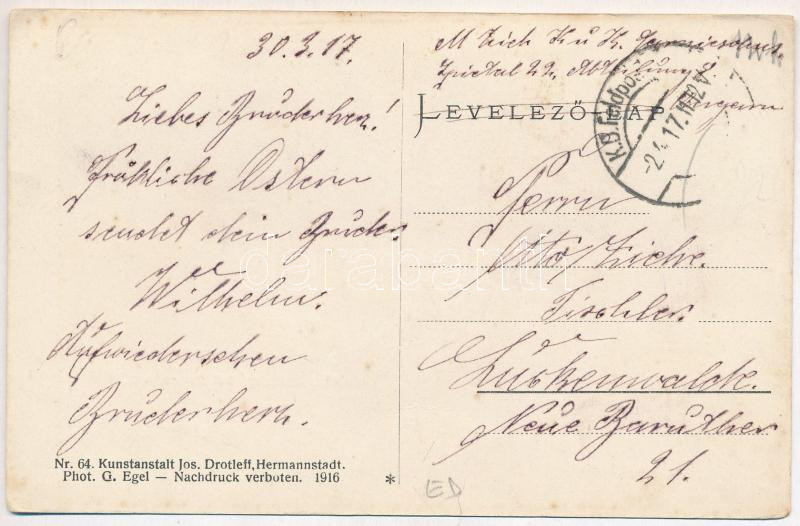 30.3.17.
Liebes Bruderherz!
Fröhliche Ostern
sendet dein Bruder
Wilhelm.
Aufwiedersehen
Bruderherz.
Nr. 64. Kunstanstalt Jos. Drotleff, Hermannstadt.
Phot. G. Egel — Nachdruck verboten. 1916
*
K. u. K.
Abteilung
Ungarn
LEVELEZŐ-LAP
K.B. Feldpost
-2.4.17.
Herrn
Otto Ziche.
Tischler.
Luckenwalde.
Neue Baruther
21.
ED
darabanth